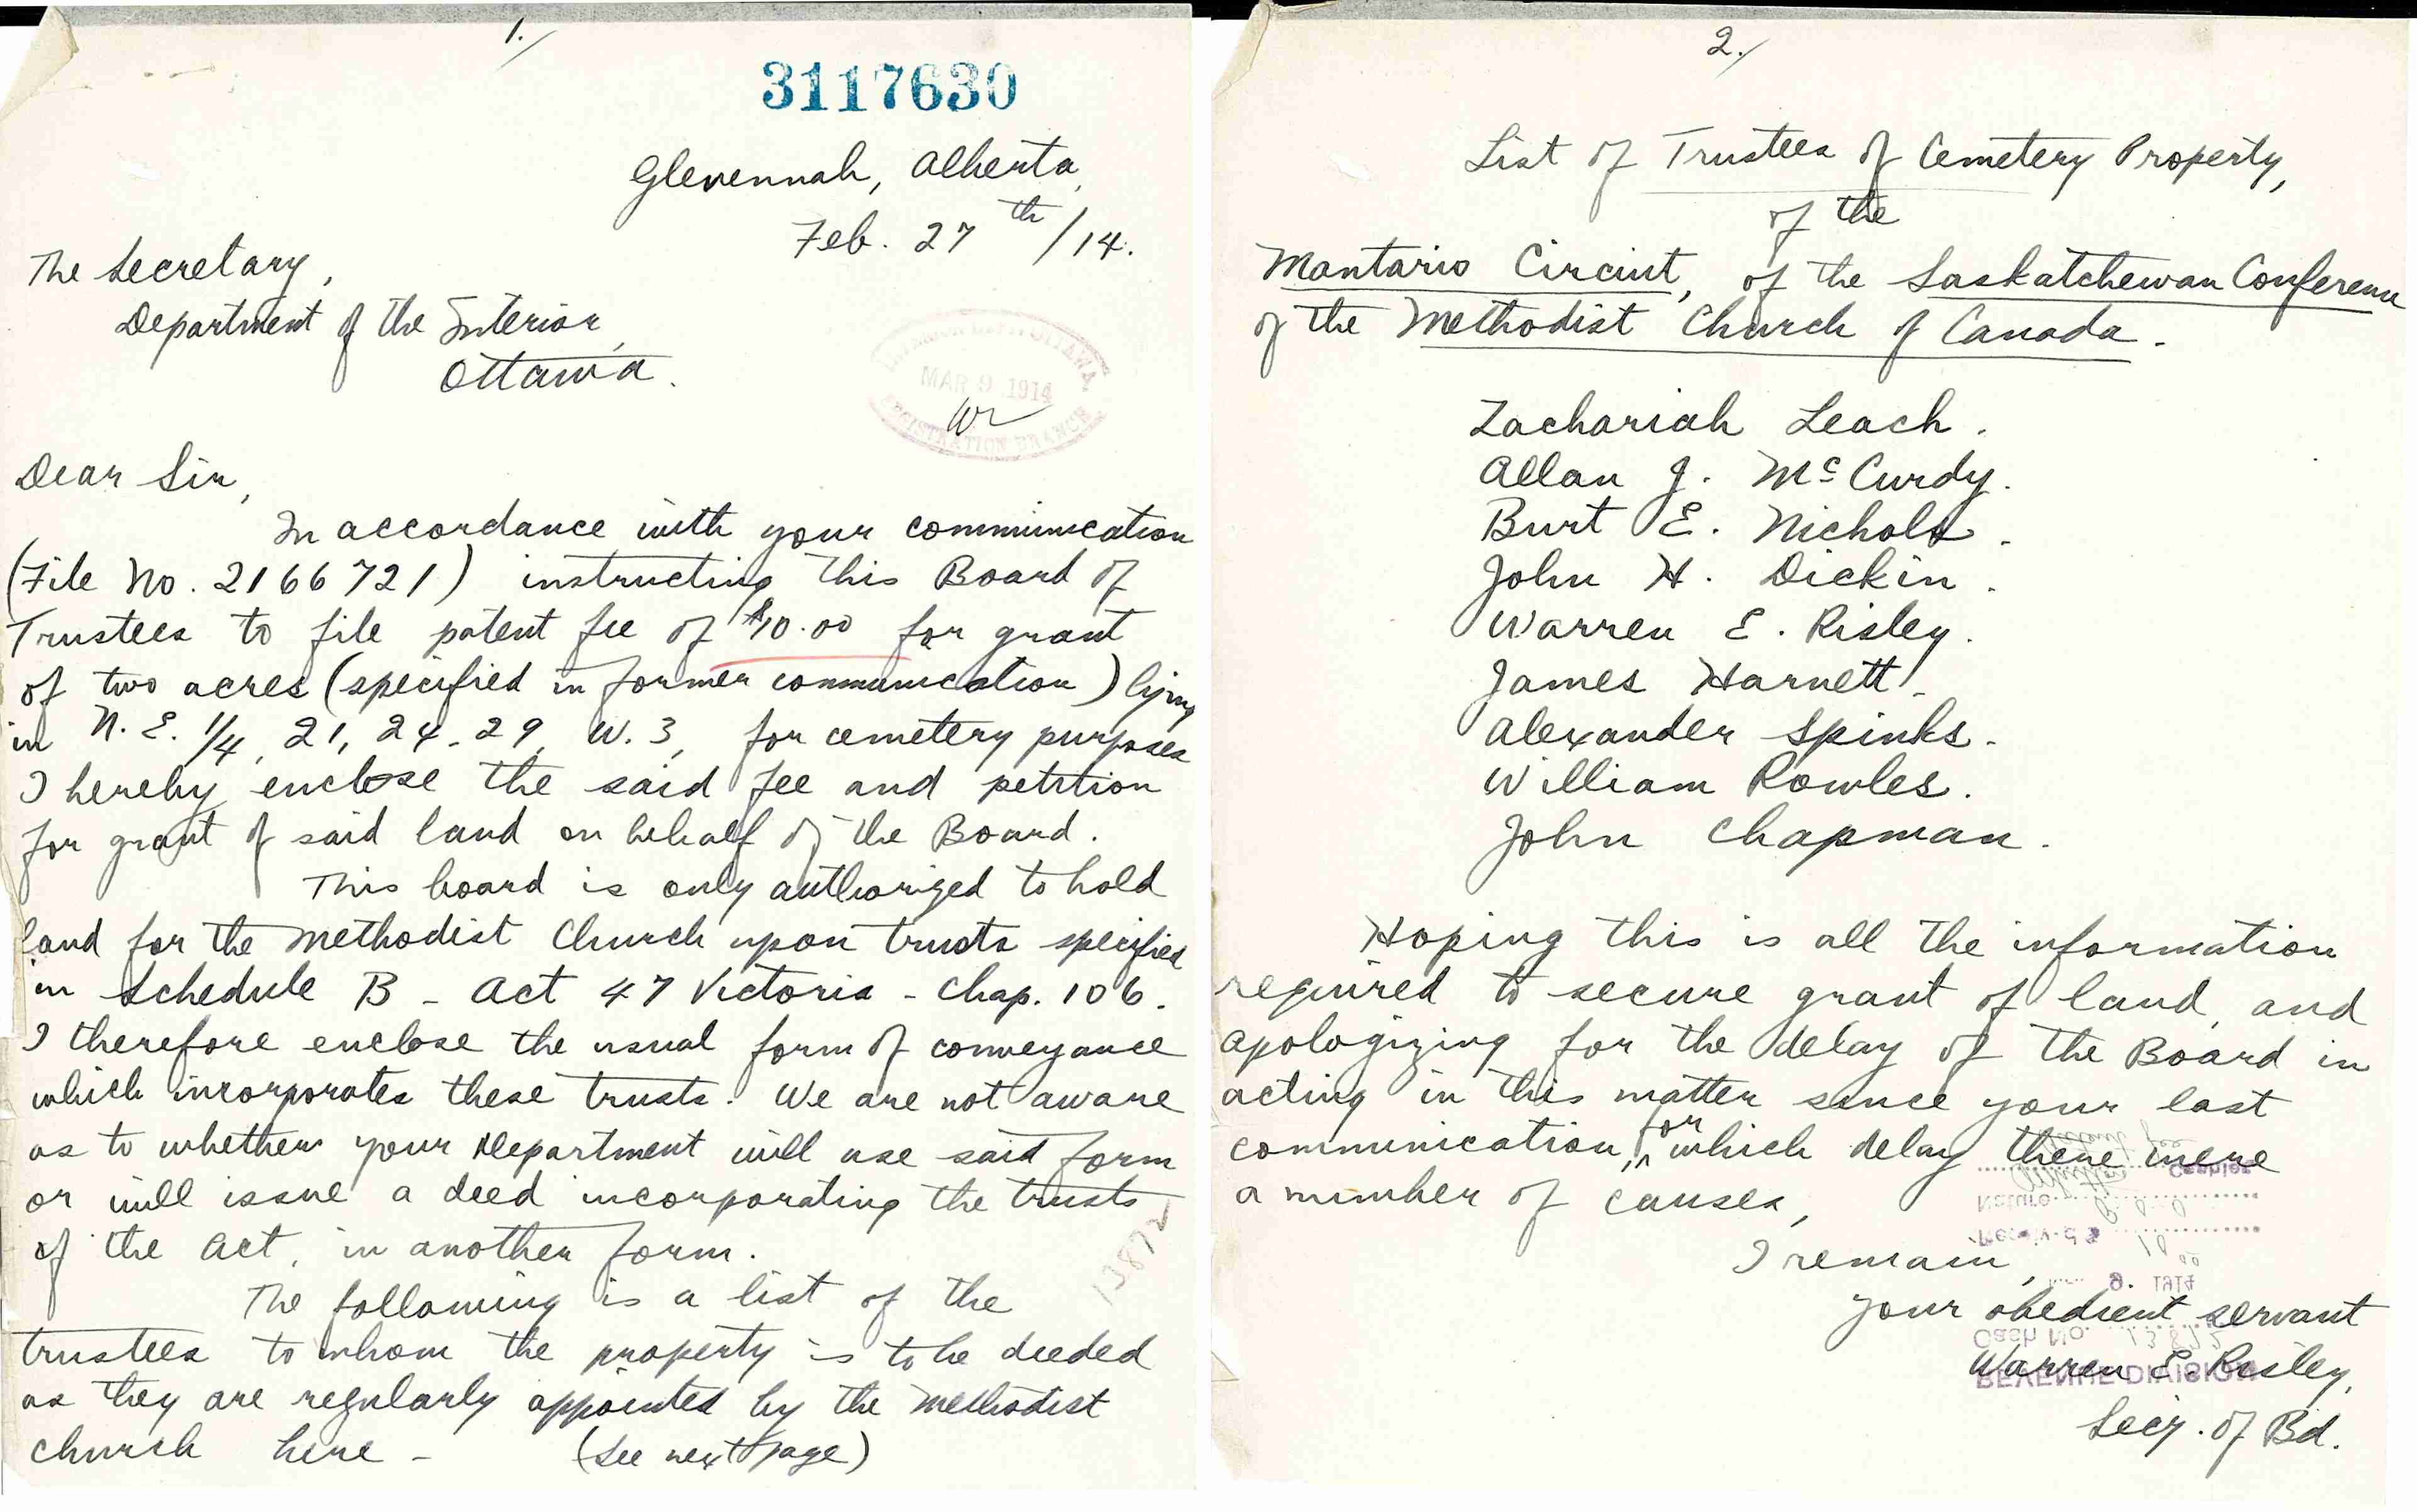 1.
3117630
Glenennah, Alberta,
Feb. 27th/14.
The Secretary,
Department of the Interior,
Ottawa.
OTTAWA
MAR 9 1914
REGISTRATION BRANCH
Dear Sir,
In accordance with your communication
(File No. 2166721) instructing this Board of
Trustees to file patent fee of $10.00 for grant
of two acres (specified in former communication) lying
in N.E. 1/4, 21, 24-29, W.3, for cemetery purposes
I hereby enclose the said fee and petition
for grant of said land on behalf of the Board.
This board is only authorized to hold
land for the Methodist Church upon trusts specified
in Schedule B - Act 47 Victoria - Chap. 106.
I therefore enclose the usual form of conveyance
which incorporates these trusts. We are not aware
as to whether your Department will use said form
or will issue a deed incorporating the trusts
of the Act, in another form.
13872
The following is a list of the
trustees to whom the property is to be deeded
as they are regularly appointed by the Methodist
church here - (See next page)
2.
List of Trustees of Cemetery Property,
of the
Mantario Circuit, of the Saskatchewan Conference
of the Methodist Church of Canada.
Zachariah Leach.
Allan J. McCurdy.
Burt E. Nichols.
John H. Dickin.
Warren E. Risley.
James Harnett.
Alexander Spinks.
William Rowles.
John Chapman.
Hoping this is all the information
required to secure grant of land, and
apologizing for the delay of the Board in
acting in this matter since your last
communication, for which delay there were
a number of causes,
I remain,
Your obedient servant
Warren E. Risley,
Secy. of Bd.
Cashier
Nature
Received $ 10.00
9. 1914
Cash No. 13872
REVENUE DIVISION